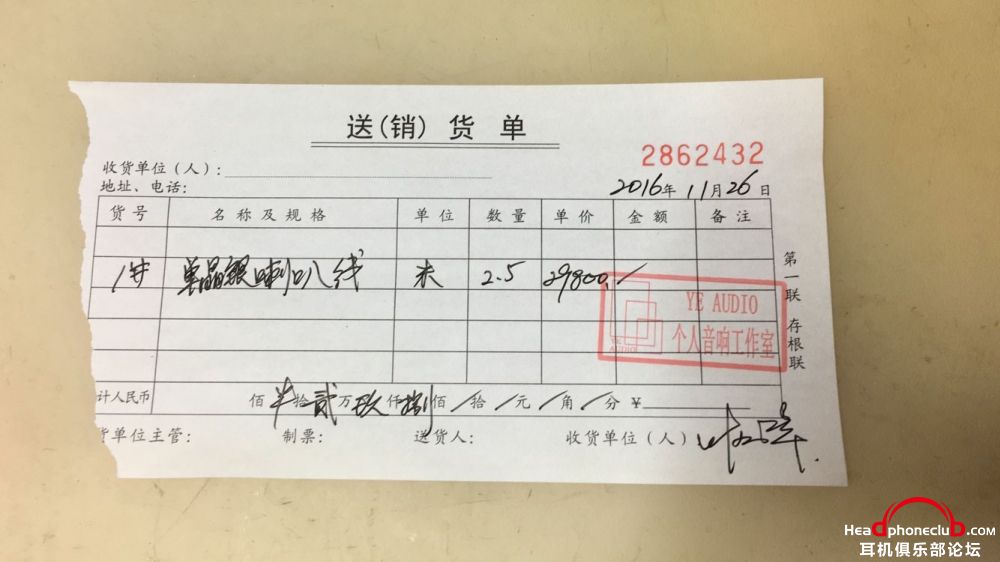 送(销)货单
2862432
收货单位(人):
地址、电话:
2016年11月26日
货号 名称及规格 单位 数量 单价 金额 备注
单晶银喇叭线 米 2.5 29800./
第一联 存根联
YE AUDIO
个人音响工作室
YE AUDIO
计人民币 佰 拾贰万玖仟捌佰/拾/元/角/分¥
货单位主管: 制票: 送货人: 收货单位(人)
HeadphoneclubB.com
耳机俱乐部论坛